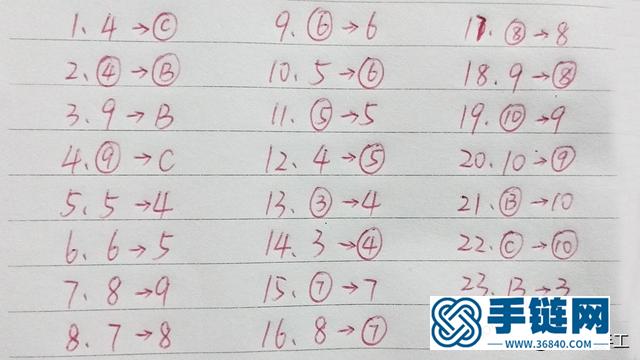 1. 4→Ⓒ
2. ④→Ⓑ
3. 9→B
4. ⑨→C
5. 5→4
6. 6→5
7. 8→9
8. 7→8
9. ⑥→6
10. 5→⑥
11. ⑤→5
12. 4→⑤
13. ③→4
14. 3→④
15. ⑦→7
16. 8→⑦
17. ⑧→8
18. 9→⑧
19. ⑩→9
20. 10→⑨
21. Ⓑ→10
22. Ⓒ→⑩
23. B→3
手链网
www.36840.com
工